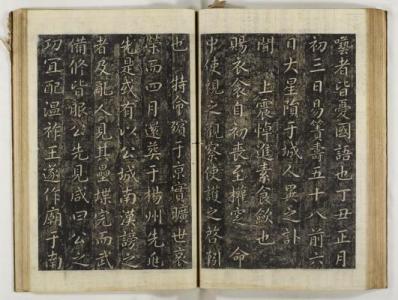 藝者皆憂國語也丁丑正月
初三日易簀壽五十八前六
日大星隕于城人異之訃
聞 上震悼進素食歛也
賜衣衾自初喪至攢窆 命
中使視之觀察使護之啓引
也 特命殯于京實曠世哀
榮而四月還葬于楊州先兆
先是或有以公城南漢謗之
者及亂人見其壘堞完而武
備修皆服公先見咸曰公之
功宜配温祚王遂作廟于南